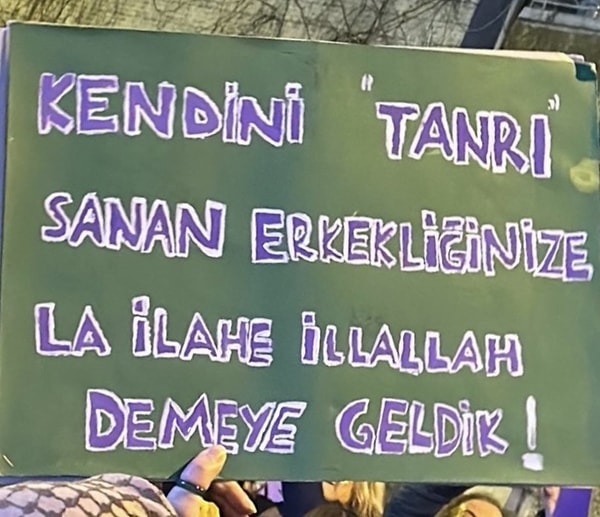 KENDİNİ "TANRI"
SANAN ERKEKLİĞİNİZE
LA İLAHE İLLALLAH
DEMEYE GELDİK!